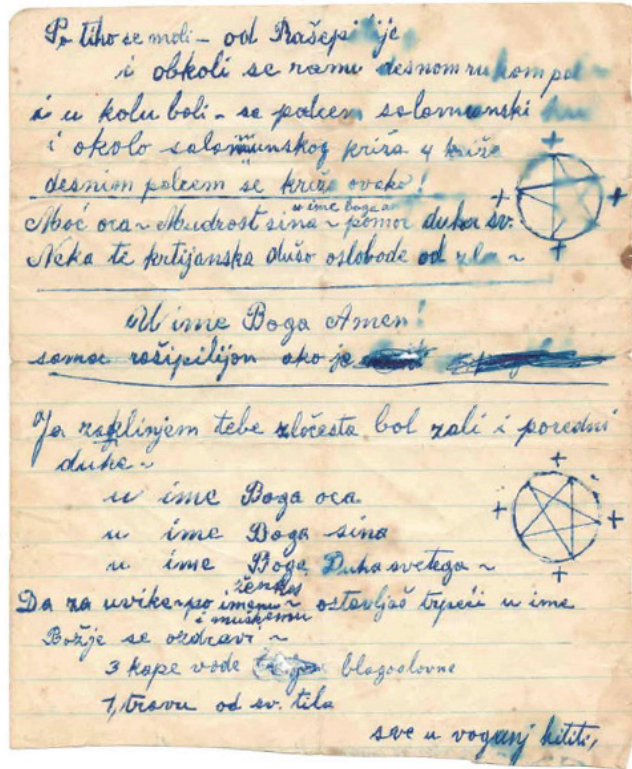 Po tiho se moli - od Rašepilije
i obkoli se ranu desnom rukom pal
i u kolu boli - se palcem salomunski
i okolo salomunskog križa 4 križe
desnim palcem se križa ovako!
u ime boga
Moć oca ~ Mudrost sina ~ pomoć duha sv.
Neka te krtijanska dušo oslobode od zla ~
U ime Boga Amen!
samoc rašipilijon ako je
Ja zaklinjem tebe zločesta bol zali i poredni
duhe ~
u ime Boga oca
u ime Boga sina
u ime Boga Duha svetega ~
ženkos
Da za uvike - po imenu ~ ostavljaš trpeći u ime
i muškemu
Božje se ozdravi ~
3 kape vode blagoslovne
1, travu od sv. tila
sve u voganj hititi,